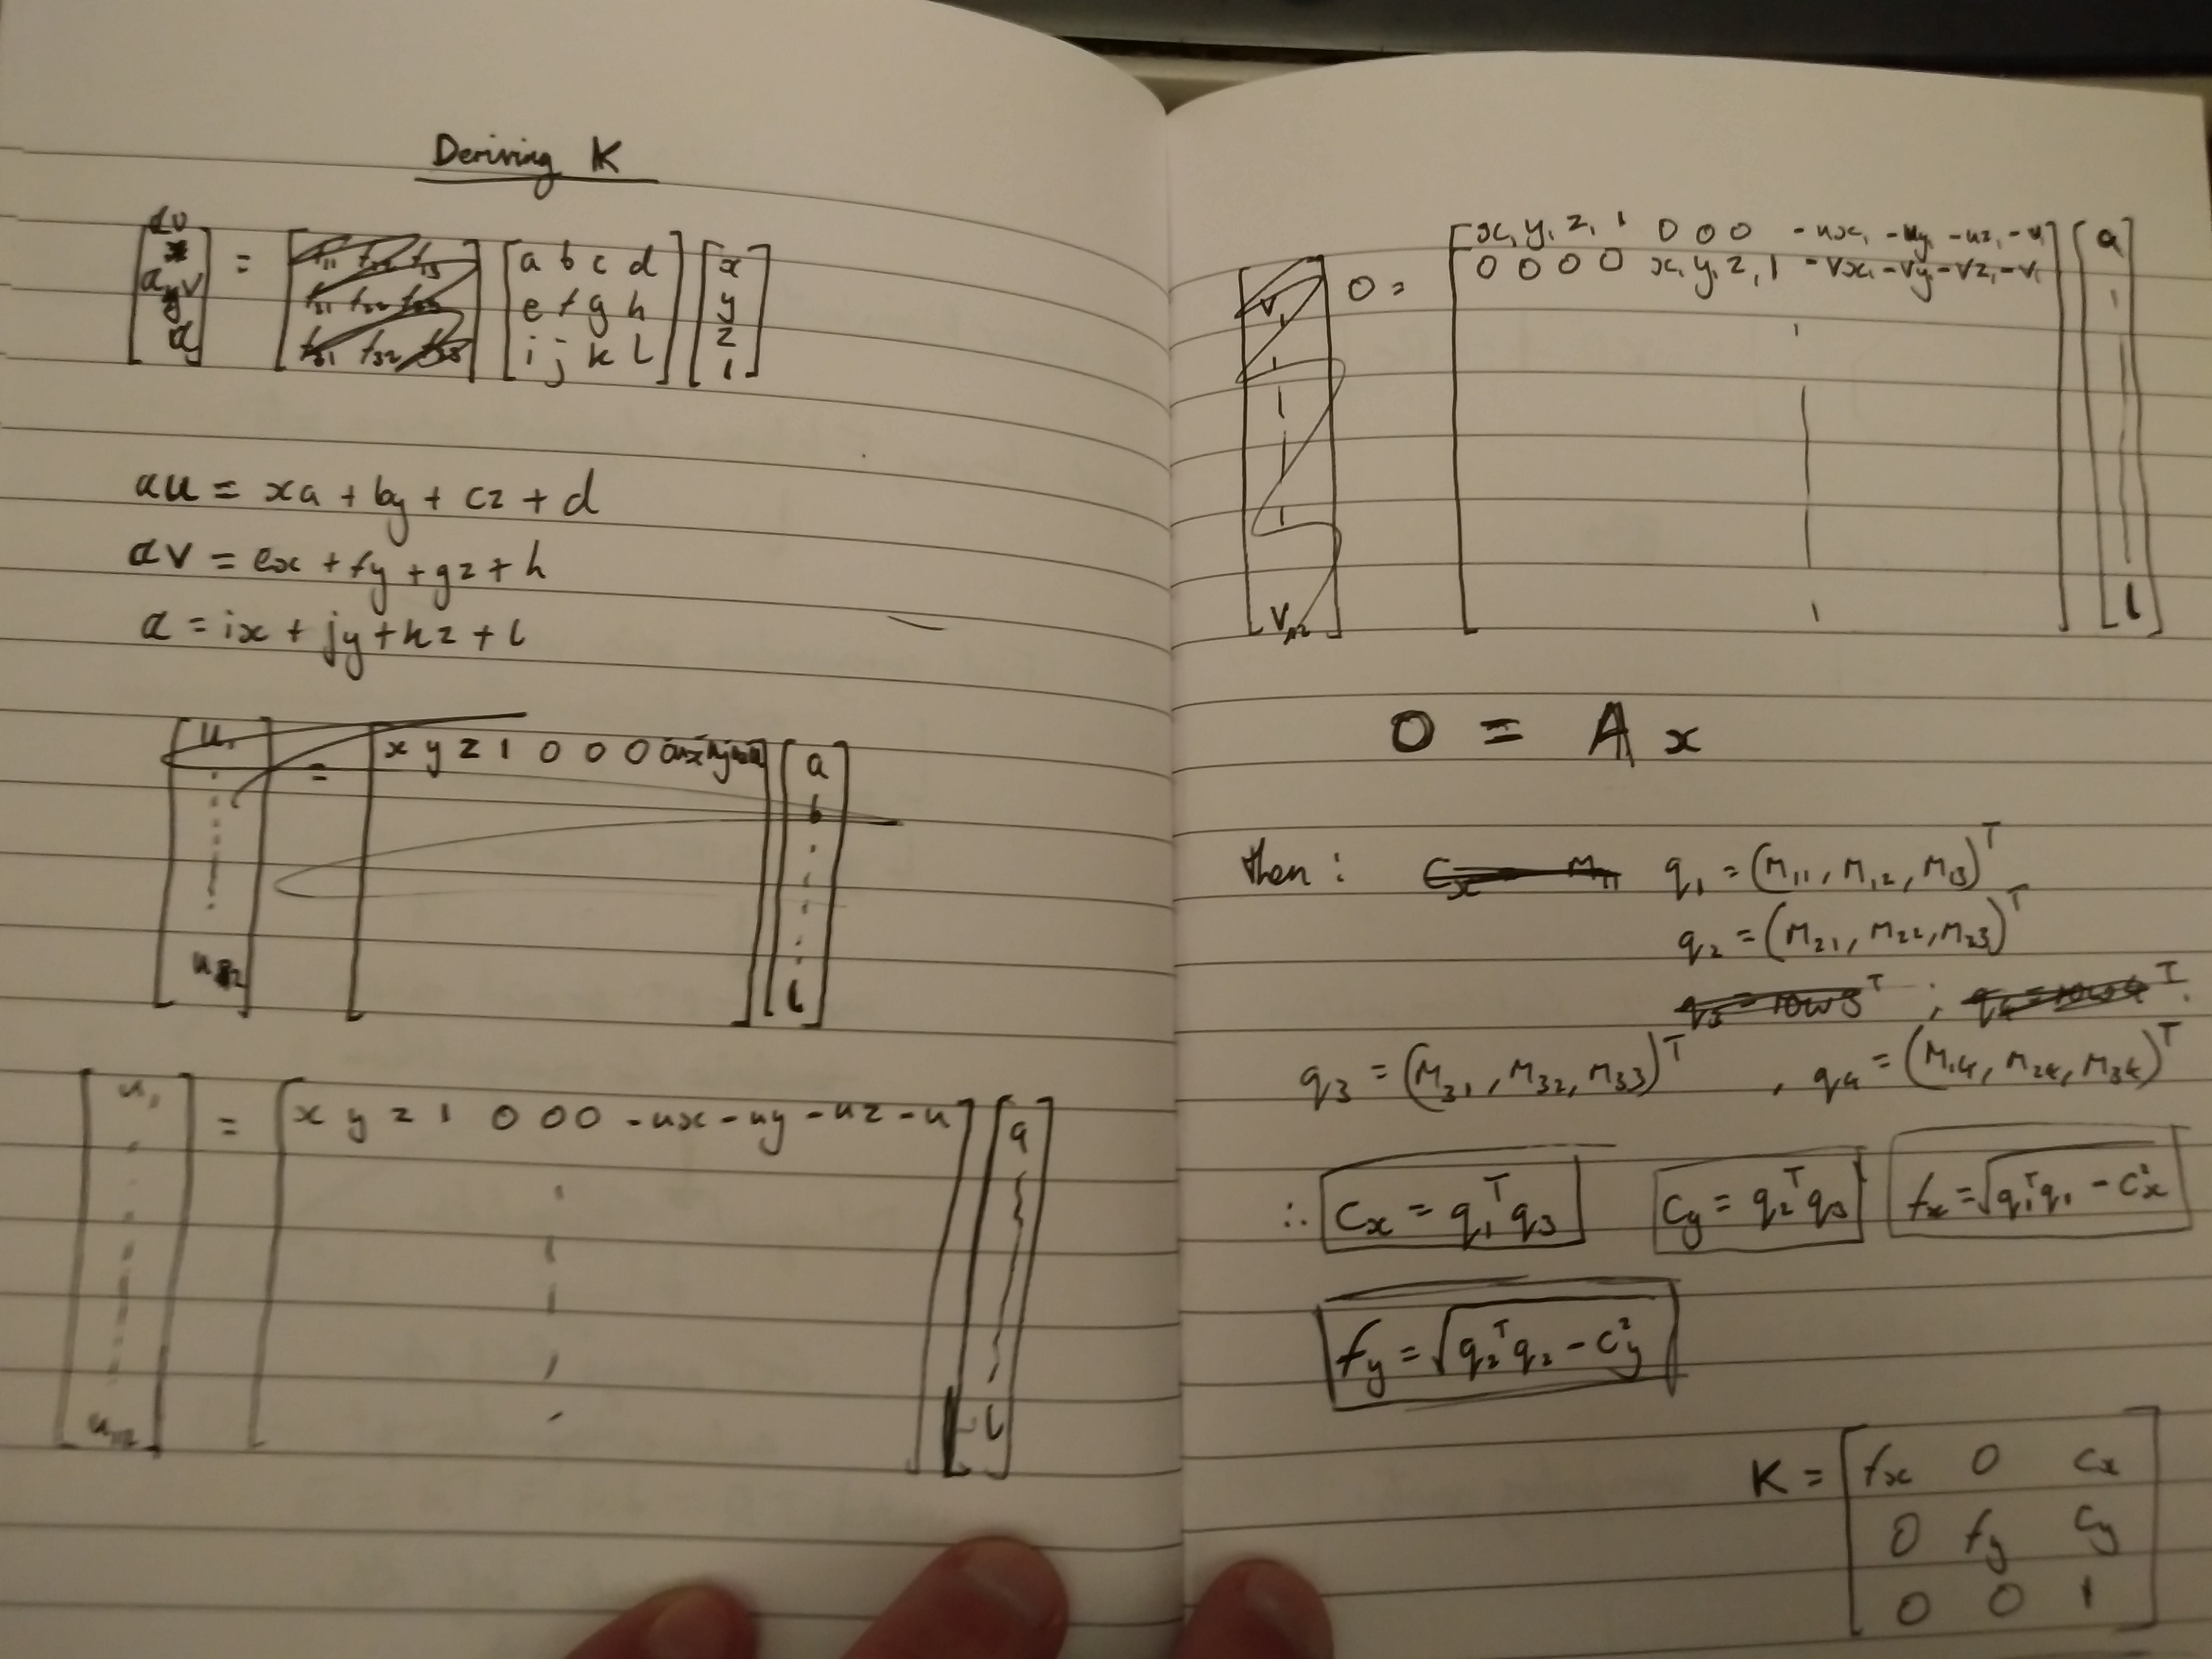 Deriving K
[αu αv α] = [a b c d] [x]
[e f g h] [y]
[i j k l] [z]
[1]
αu = xa + by + cz + d
αv = ex + fy + gz + h
α = ix + jy + kz + l
[u₁ = [x y z 1 0 0 0 [a
b
l]
[u₁ = [x y z 1 0 0 0 -ux -uy -uz -u] [a
l]
[x₁ y₁ z₁ 1 0 0 0 -ux₁ -uy₁ -uz₁ -u₁] [a]
0 = [0 0 0 0 x₁ y₁ z₁ 1 -vx₁ -vy₁ -vz₁ -v₁]
l]
0 = A x
then : q₁ = (M₁₁, M₁₂, M₁₃)ᵀ
q₂ = (M₂₁, M₂₂, M₂₃)ᵀ
q₃ = (M₃₁, M₃₂, M₃₃)ᵀ , q₄ = (M₁₄, M₂₄, M₃₄)ᵀ
∴ Cx = q₁ᵀq₃ Cy = q₂ᵀq₃ fx = √(q₁ᵀq₁ - Cx²)
fy = √(q₂ᵀq₂ - Cy²)
K = [fx 0 Cx]
[0 fy Cy]
[0 0 1]